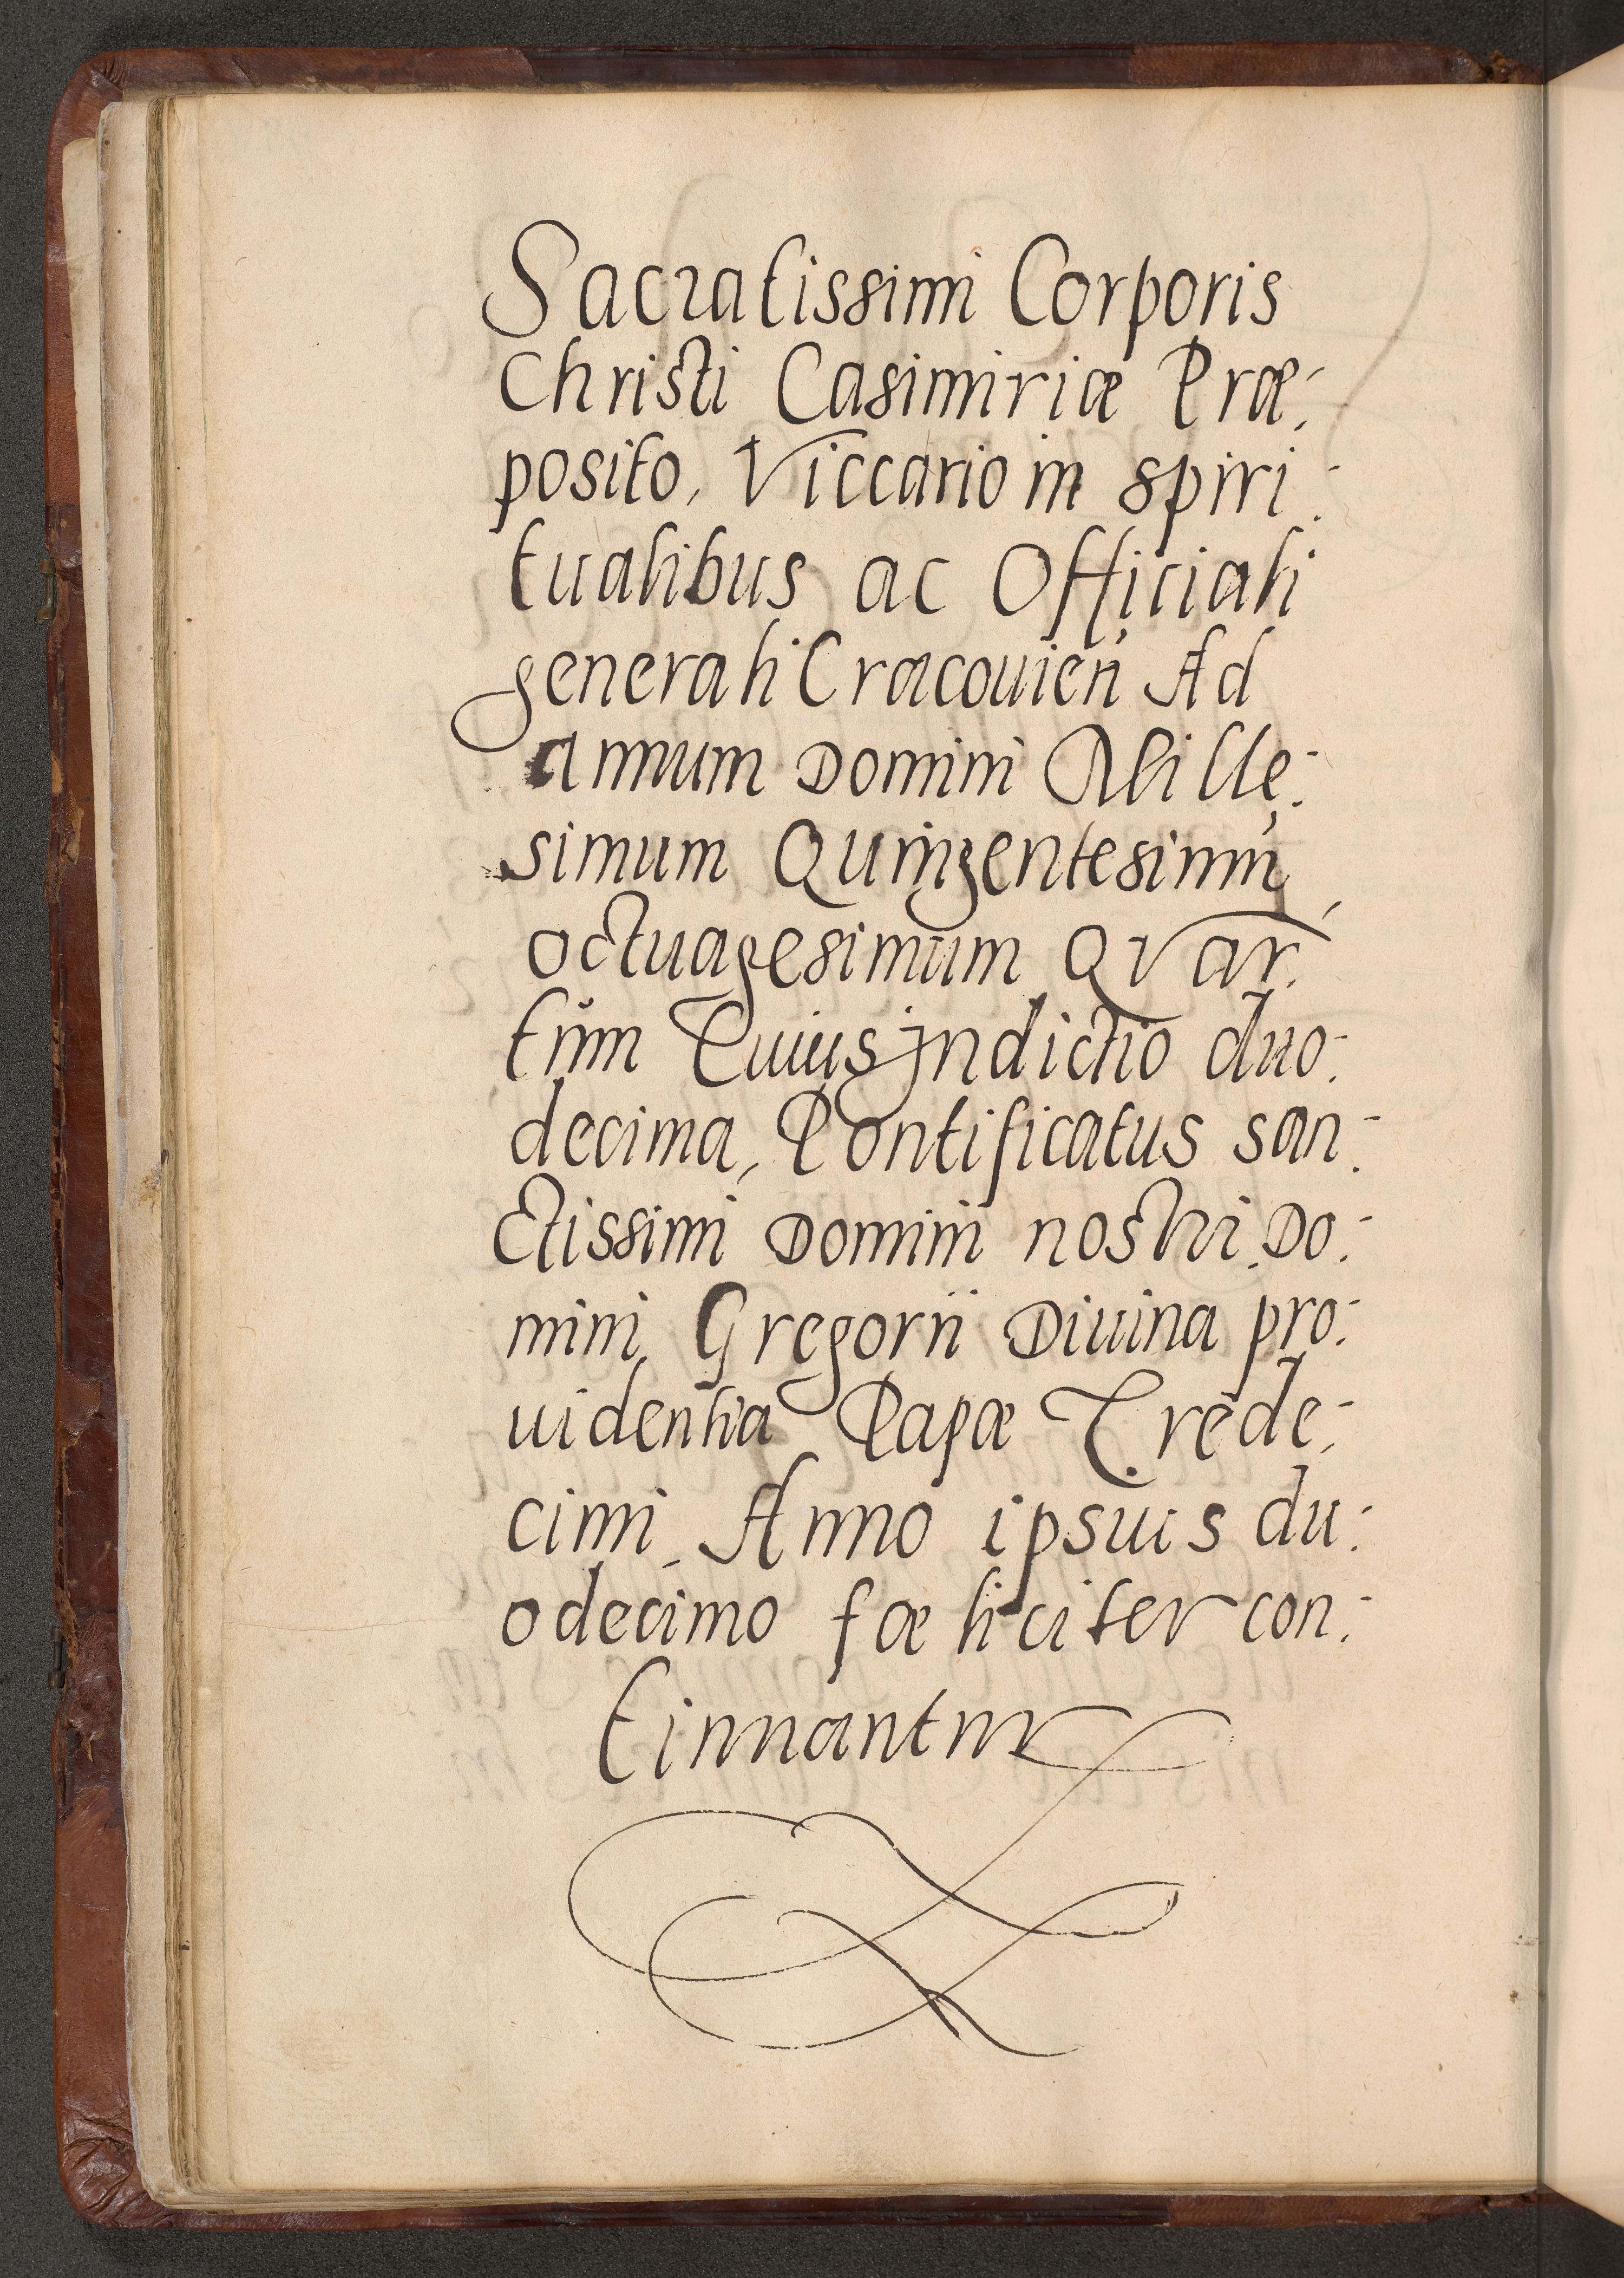 Sacratissimi Corporis
Christi Casimiriæ Præ:
posito, Viccario in spiri:
tualibus ac Officiali
generali Cracouien̄ Ad
annum Domini Mille:
simum Quingentesimū
octuagesimum Qvar:
tum Cuius jndictio duo:
decima, Pontificatus san:
ctissimi Domini nostri Do:
mini Gregorii Diuina pro:
uidentia Papæ Trede:
cimi, Anno ipsuis du:
odecimo fœliciter con:
tinnantur